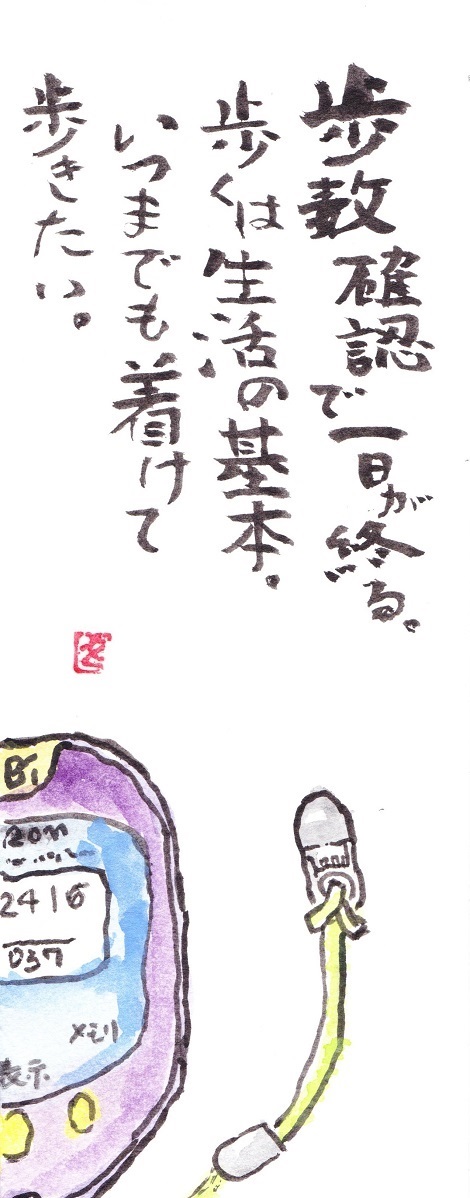 歩数確認で一日が終る。
歩くは生活の基本。
いつまでも着けて
歩きたい。
ron
2416
037
メモリ
表示